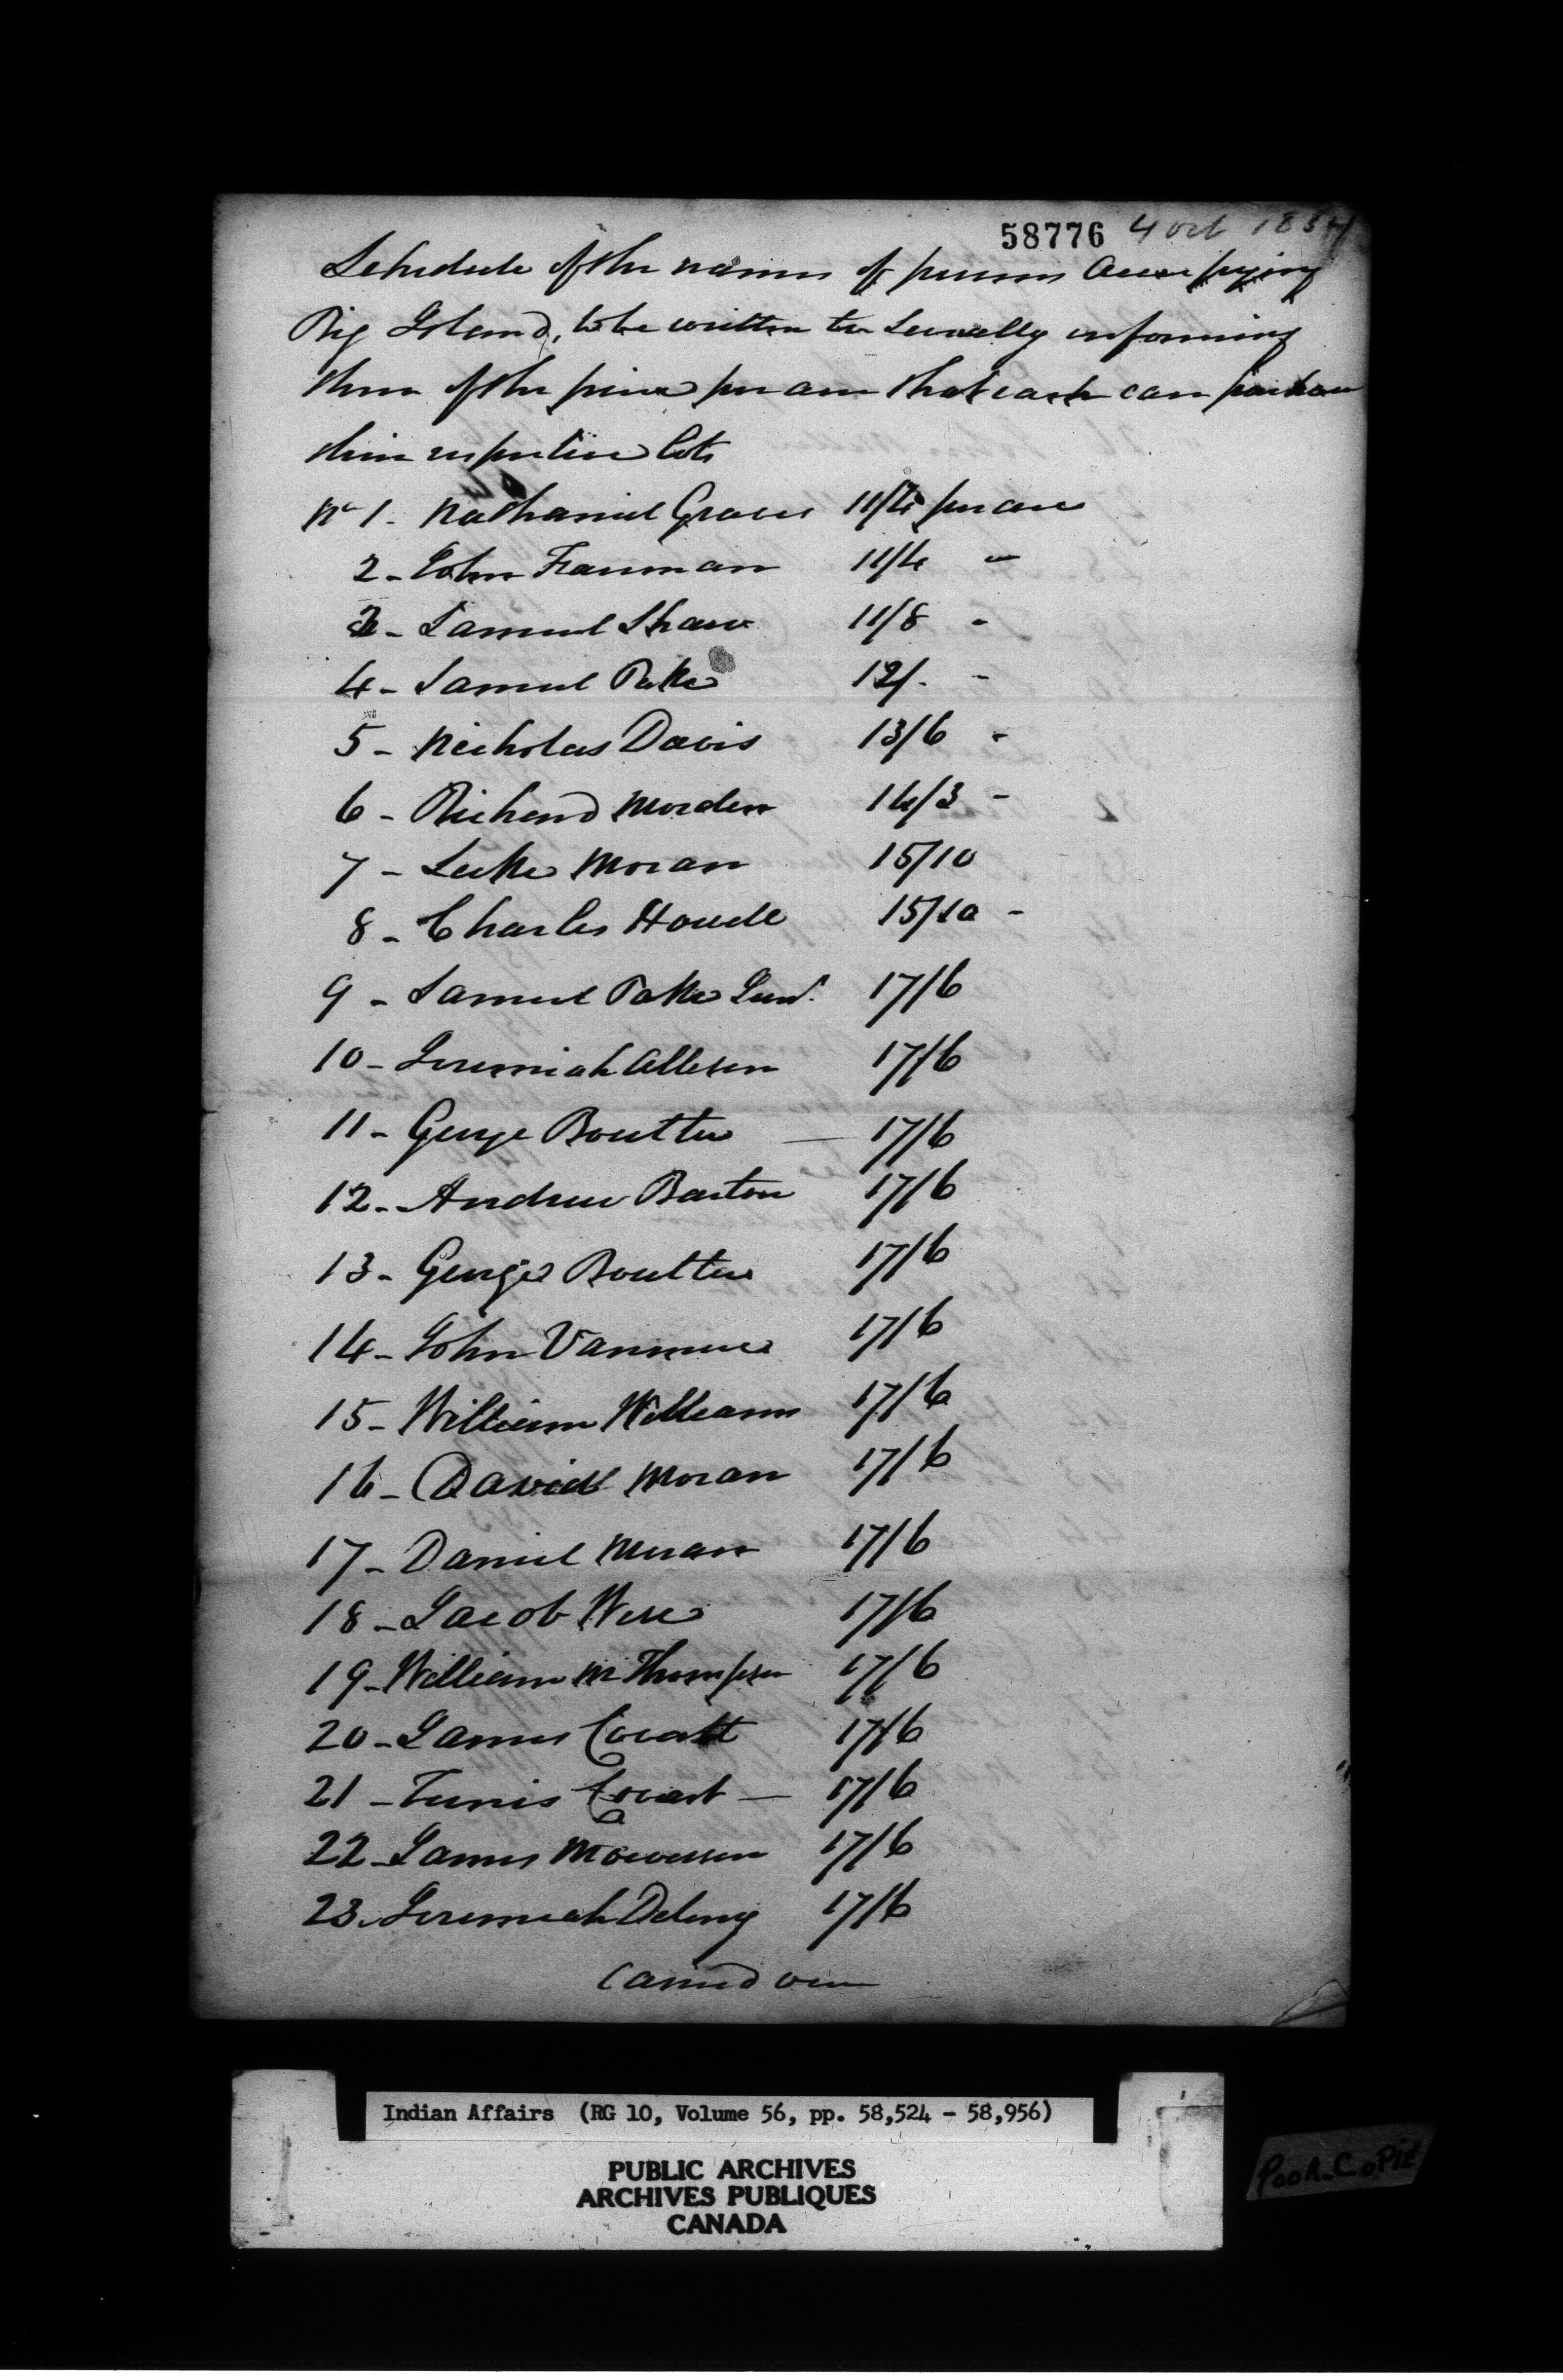 58776 4 Oct 1834
Schedule of the names of persons Occupying
Big Island, to be written to severally informing
them of the price per acre that each can purchase
their respective lots
No 1. Nathaniel Graves 11/4 per acre
2 - John Fanman 11/4 "
3 - Samuel Shaw 11/8 "
4 - Samuel Pake 12/. "
5 - Nicholas Davis 13/6 "
6 - Richard Morden 14/3 "
7 - Luke Moran 15/10
8 - Charles Houdl 15/10 "
9 - Samuel Pake Senr. 17/6
10 - Jeremiah Allison 17/6
11 - George Boulter — 17/6
12 - Andrew Barton 17/6
13 - George Boulter 17/6
14 - John 17/6
15 - William Williams 17/6
16 - David Moran 17/6
17 - Daniel Moran 17/6
18 - Jacob Wese 17/6
19 - William M Thompson 17/6
20 - James Covatt 17/6
21 - Tunis Covert — 17/6
22 - James 17/6
23. Jeremiah Delong 17/6
Carried over
Indian Affairs (RG 10, Volume 56, pp. 58,524 - 58,956)
PUBLIC ARCHIVES
ARCHIVES PUBLIQUES
CANADA
POOR COPIE